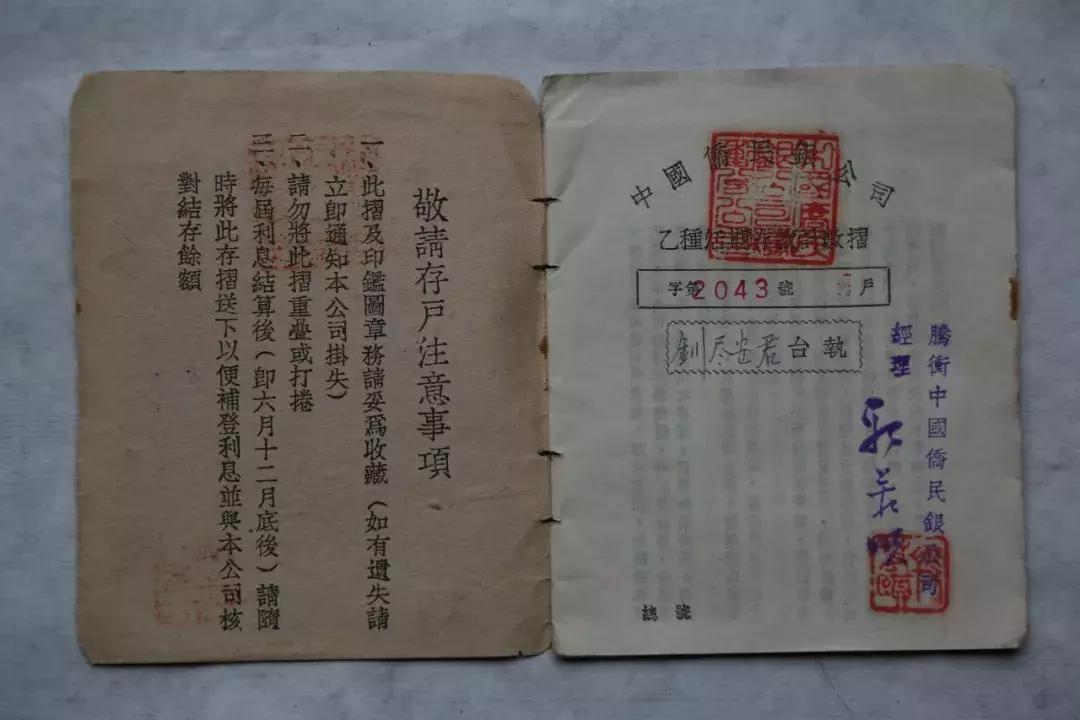 敬請存戶注意事項
一、此摺及印鑑圖章務請妥爲收藏（如有遺失請
立卽通知本公司掛失）
二、請勿將此摺重疊或打捲
三、每屆利息結算後（卽六月十二月底後）請隨
時將此存摺送下以便補登利息並與本公司核
對結存餘額
中國僑民銀公司
乙種活期存款計數摺
字第2043號 戶
君台執
騰衝中國僑民銀公司
經理
總號